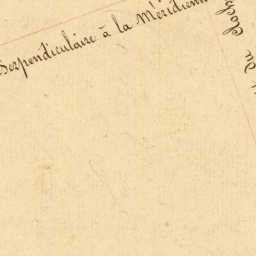 Perpendiculaire à la Méridienne
du Cloch